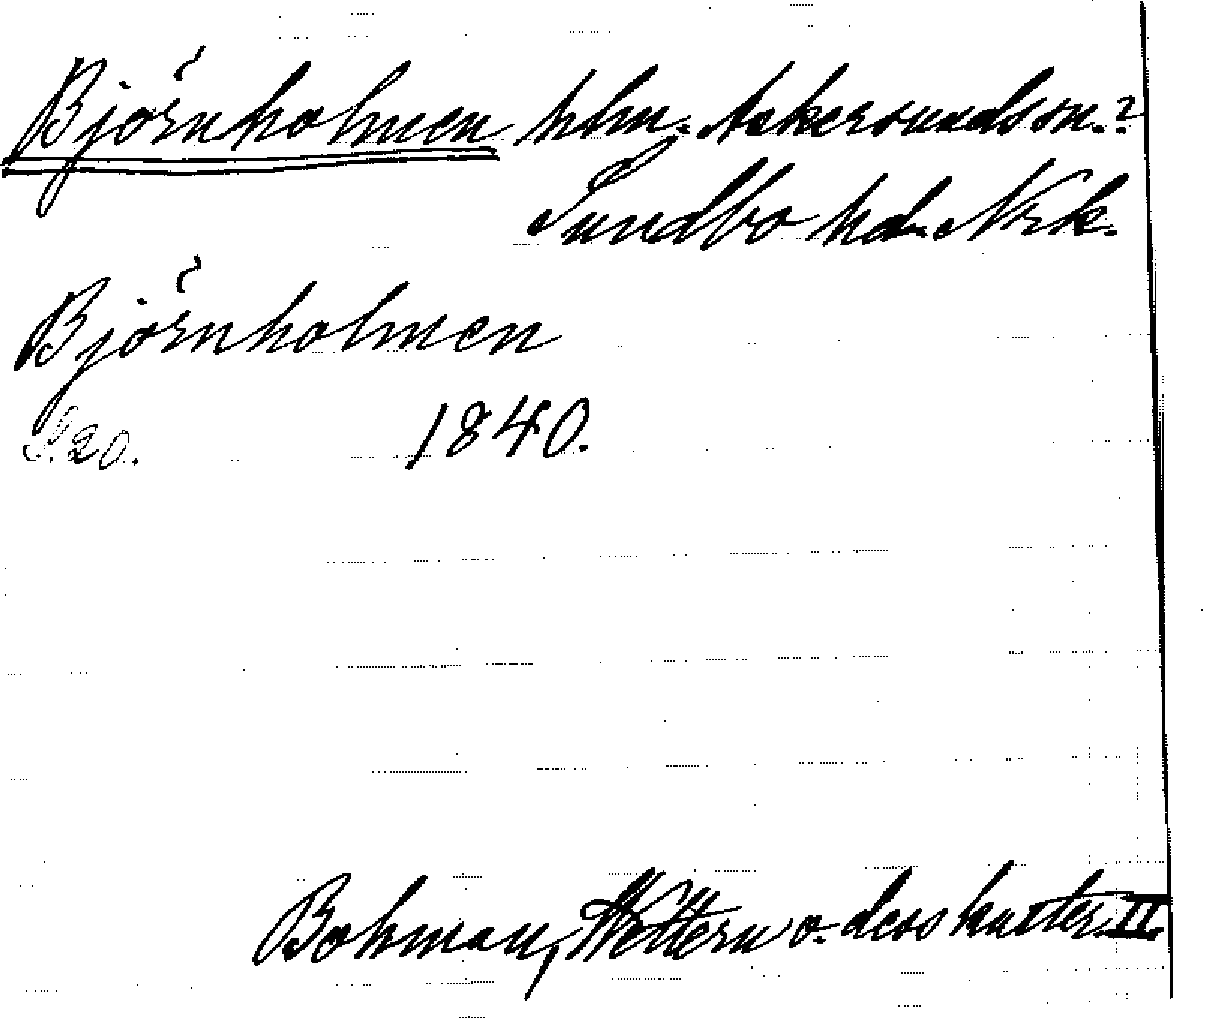 Björnholmen hlm. Askersundsson.?
Sundbo hd. Nrk.
Björnholmen
S. 20. 1840.
Bohman, Wettern o. dess kuster II